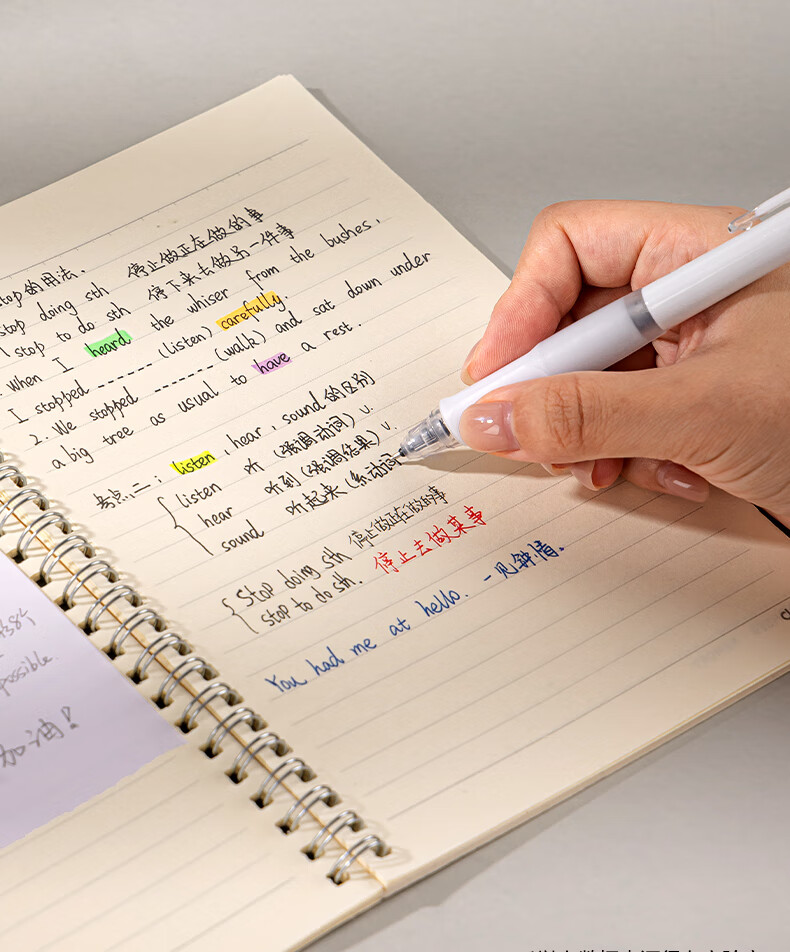 stop的用法.
stop doing sth 停止做正在做的事
stop to do sth 停下来去做另一件事
. When I heard the whiser from the bushes,
I stopped ------ (listen) carefully
2. We stopped ------ (walk) and sat down under
a big tree as usual to have a rest.
考点二: listen, hear, sound 的区别
listen 听 (强调动词) v.
hear 听到 (强调结果) v.
sound 听起来 (系动词
Stop doing sth 停止做正在做的事
stop to do sth. 停止去做某事
You had me at hello. 一见钟情.
possible.
加油!